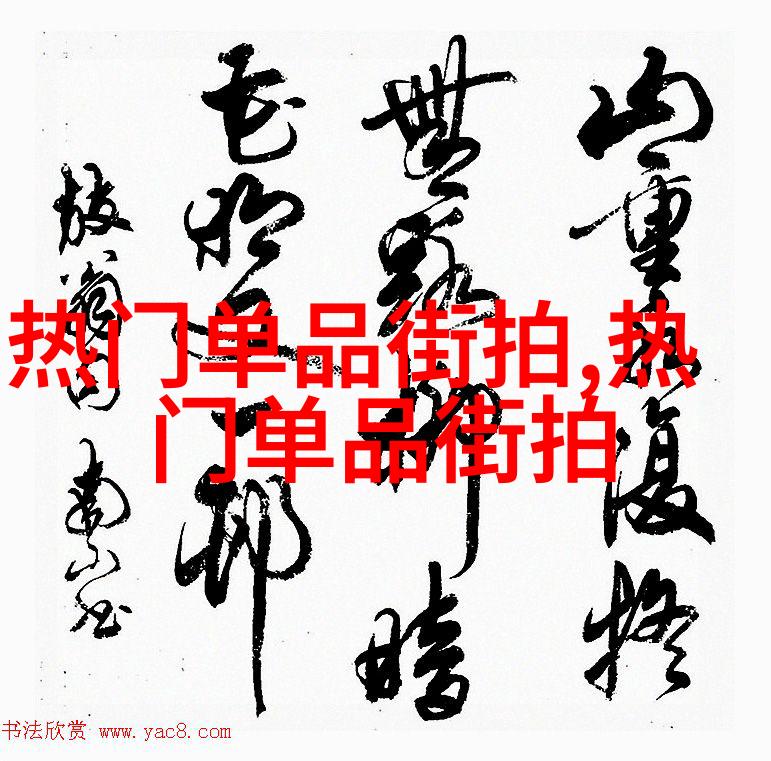 山重水復疑
無路柳暗
花明又一邨
放翁句 南山书
热门单品街拍,热
门单品街拍
书法欣赏 www.yac8.com